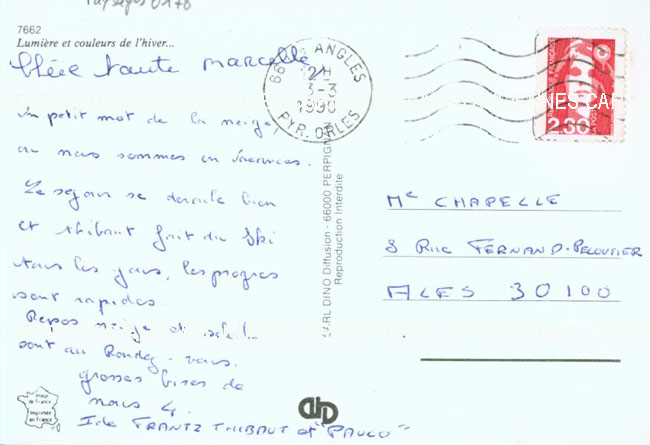 Paysages 0178
7662
Lumière et couleurs de l'hiver...
Chère tante Marcelle
Un petit mot de la neige,
où nous sommes en vacances.
Le séjour se déroule bien
et Thibaut fait du ski
tous les jours, les progrès
sont rapides.
Repos neige et soleil
sont au Rendez-vous.
grosses bises de
nous 4.
Ida FRANTZ THIBAUT et "PAULO"
66 LES ANGLES
12H
3-3
1990
PYR. ORLES
REPUBLIQUE FRANÇAISE
2,30
POSTES
CARL DINO Diffusion - 66000 PERPIGNAN
Reproduction Interdite
Me CHAPELLE
8 Rue FERNAND-PELOUTIER
ALES 30100
CARTES POSTALES ANCIENNES CARTES
CARTES POSTALES ANCIENNES CARTES
image
de France
imprimée
en France